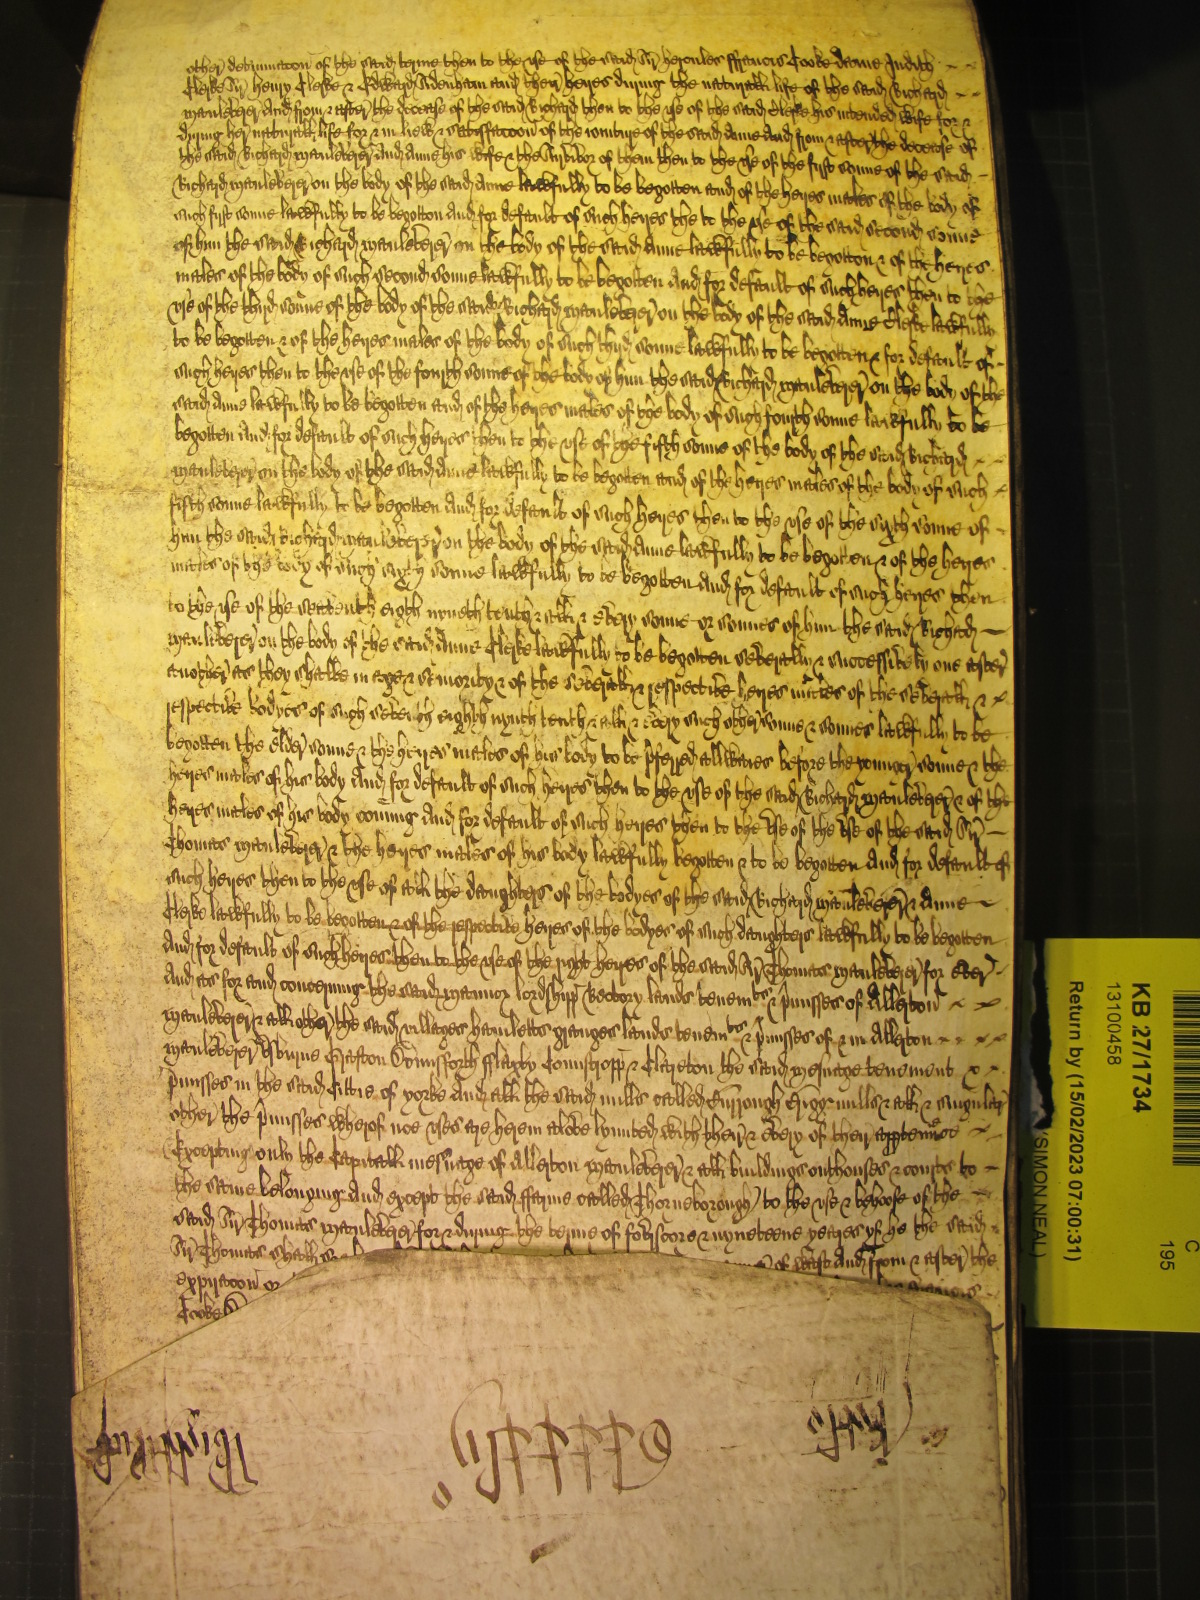 other determinacon of the said terme then to the use of the said Sir Hercules Ffrancis Cooke dame Judith
Cleke Sir Henry Cleke & Edward Sidenham and their heires during the naturall life of the said Richard
Mauleverer And from & after the decease of the said Richard then to the use of the said Cleke his intended wife for &
during her naturall life for & in liew & satisfaccon of the ioynture of the said Anne And from & after the decease of
the said Richard Mauleverer and Anne his wife & the Survivor of them then to the use of the first sonne of the said
Richard Mauleverer on the body of the said Anne lawfully to be begotten and of the heires males of the body of
such first sonne lawfully to be begotten And for default of such heyres the to the use of the said second sonne
of him the said Richard Mauleverer on the body of the said Anne lawfully to be begotten & of the heyres
males of the body of such second sonne lawfully to be begotten And for default of such heyres then to the
use of the third sonne of the body of the said Richard Mauleverer on the body of the said Anne Cleke lawfully
to be begotten & of the heyres males of the body of such third sonne lawfully to be begotten & for default of
such heyres then to the use of the fourth sonne of the body of him the said Richard Mauleverer on the body of the
said Anne lawfully to be begotten and of the heyres males of the body of such fourth sonne lawfully to be
begotten And for default of such heyres then to the use of the fifth sonne of the body of the said Richard
Mauleverer on the body of the said Anne lawfully to be begotten and of the heyres males of the body of such
fifth sonne lawfully to be begotten And for default of such heyres then to the use of the sixth sonne of
him the said Richard Mauleverer on the body of the said Anne lawfully to be begotten & of the heyres
males of the body of such sixth sonne lawfully to be begotten And for default of such heyres then
to the use of the seaventh eigth nyneth tenth & all & every sonne or sonnes of him the said Richard
Mauleverer on the body of the said Anne Cleke lawfully to be begotten severally & successively one after
another as they shalbe in age & seniority & of the severall & respective heyres males of the severall &
respective bodyes of such seventh eighth nynth tenth & all & every such other sonne & sonnes lawfully to be
begotten the elder sonne & the heyres males of his body to be pferred allwaies before the younger sonne & the
heyres males of his body And for default of such heyres then to the use of the said Richard Mauleverer & of the
heyres males of his body coming And for default of such heyres then to the use of the use of the said Sir
Thomas Mauleverer & the heyres males of his body lawfully begotten & to be begotten And for default of
such heyres then to the use of all the daughters of the bodyes of the said Richard Mauleverer & Anne
Cleke lawfully to be begotten & of the respective heyres of the bodyes of such daughters lawfully to be begotten
And for default of such heyres then to the use of the right heyres of the said Sir Thomas Mauleverer for ever
And as for and concerning the said Mannor lordshipp Rectory lands tenemts & pmisses of Allerton
Mauleverer & all other the said villages hamletts granges lands tenemts & pmisses of & in Allerton
Mauleverer Grafton fflaxby & Clareton the said mesuage tenement
pmisses in the said Cittie of Yorke And all the said mills called mills & all & singular
other the pmisses wherof noe uses are herein above lymited with their & every of their apptennces
Excepting only the Capitall mesuage of Allerton Mauleverer & all buildings outhouses & courts to
the same belonging And except the said ffarme called Thorneborough to the use & behoofe of the
said Sir Thomas Mauleverer for & during the terme of fowrscore & nyneteene yeares yf he the said
Sir Thomas shall so of wast And from & after the
expiracon or
Cooke
KB 27/1734
13100458
Return by (15/02/2023 07:00:31)
(SIMON NEAL)
C
195